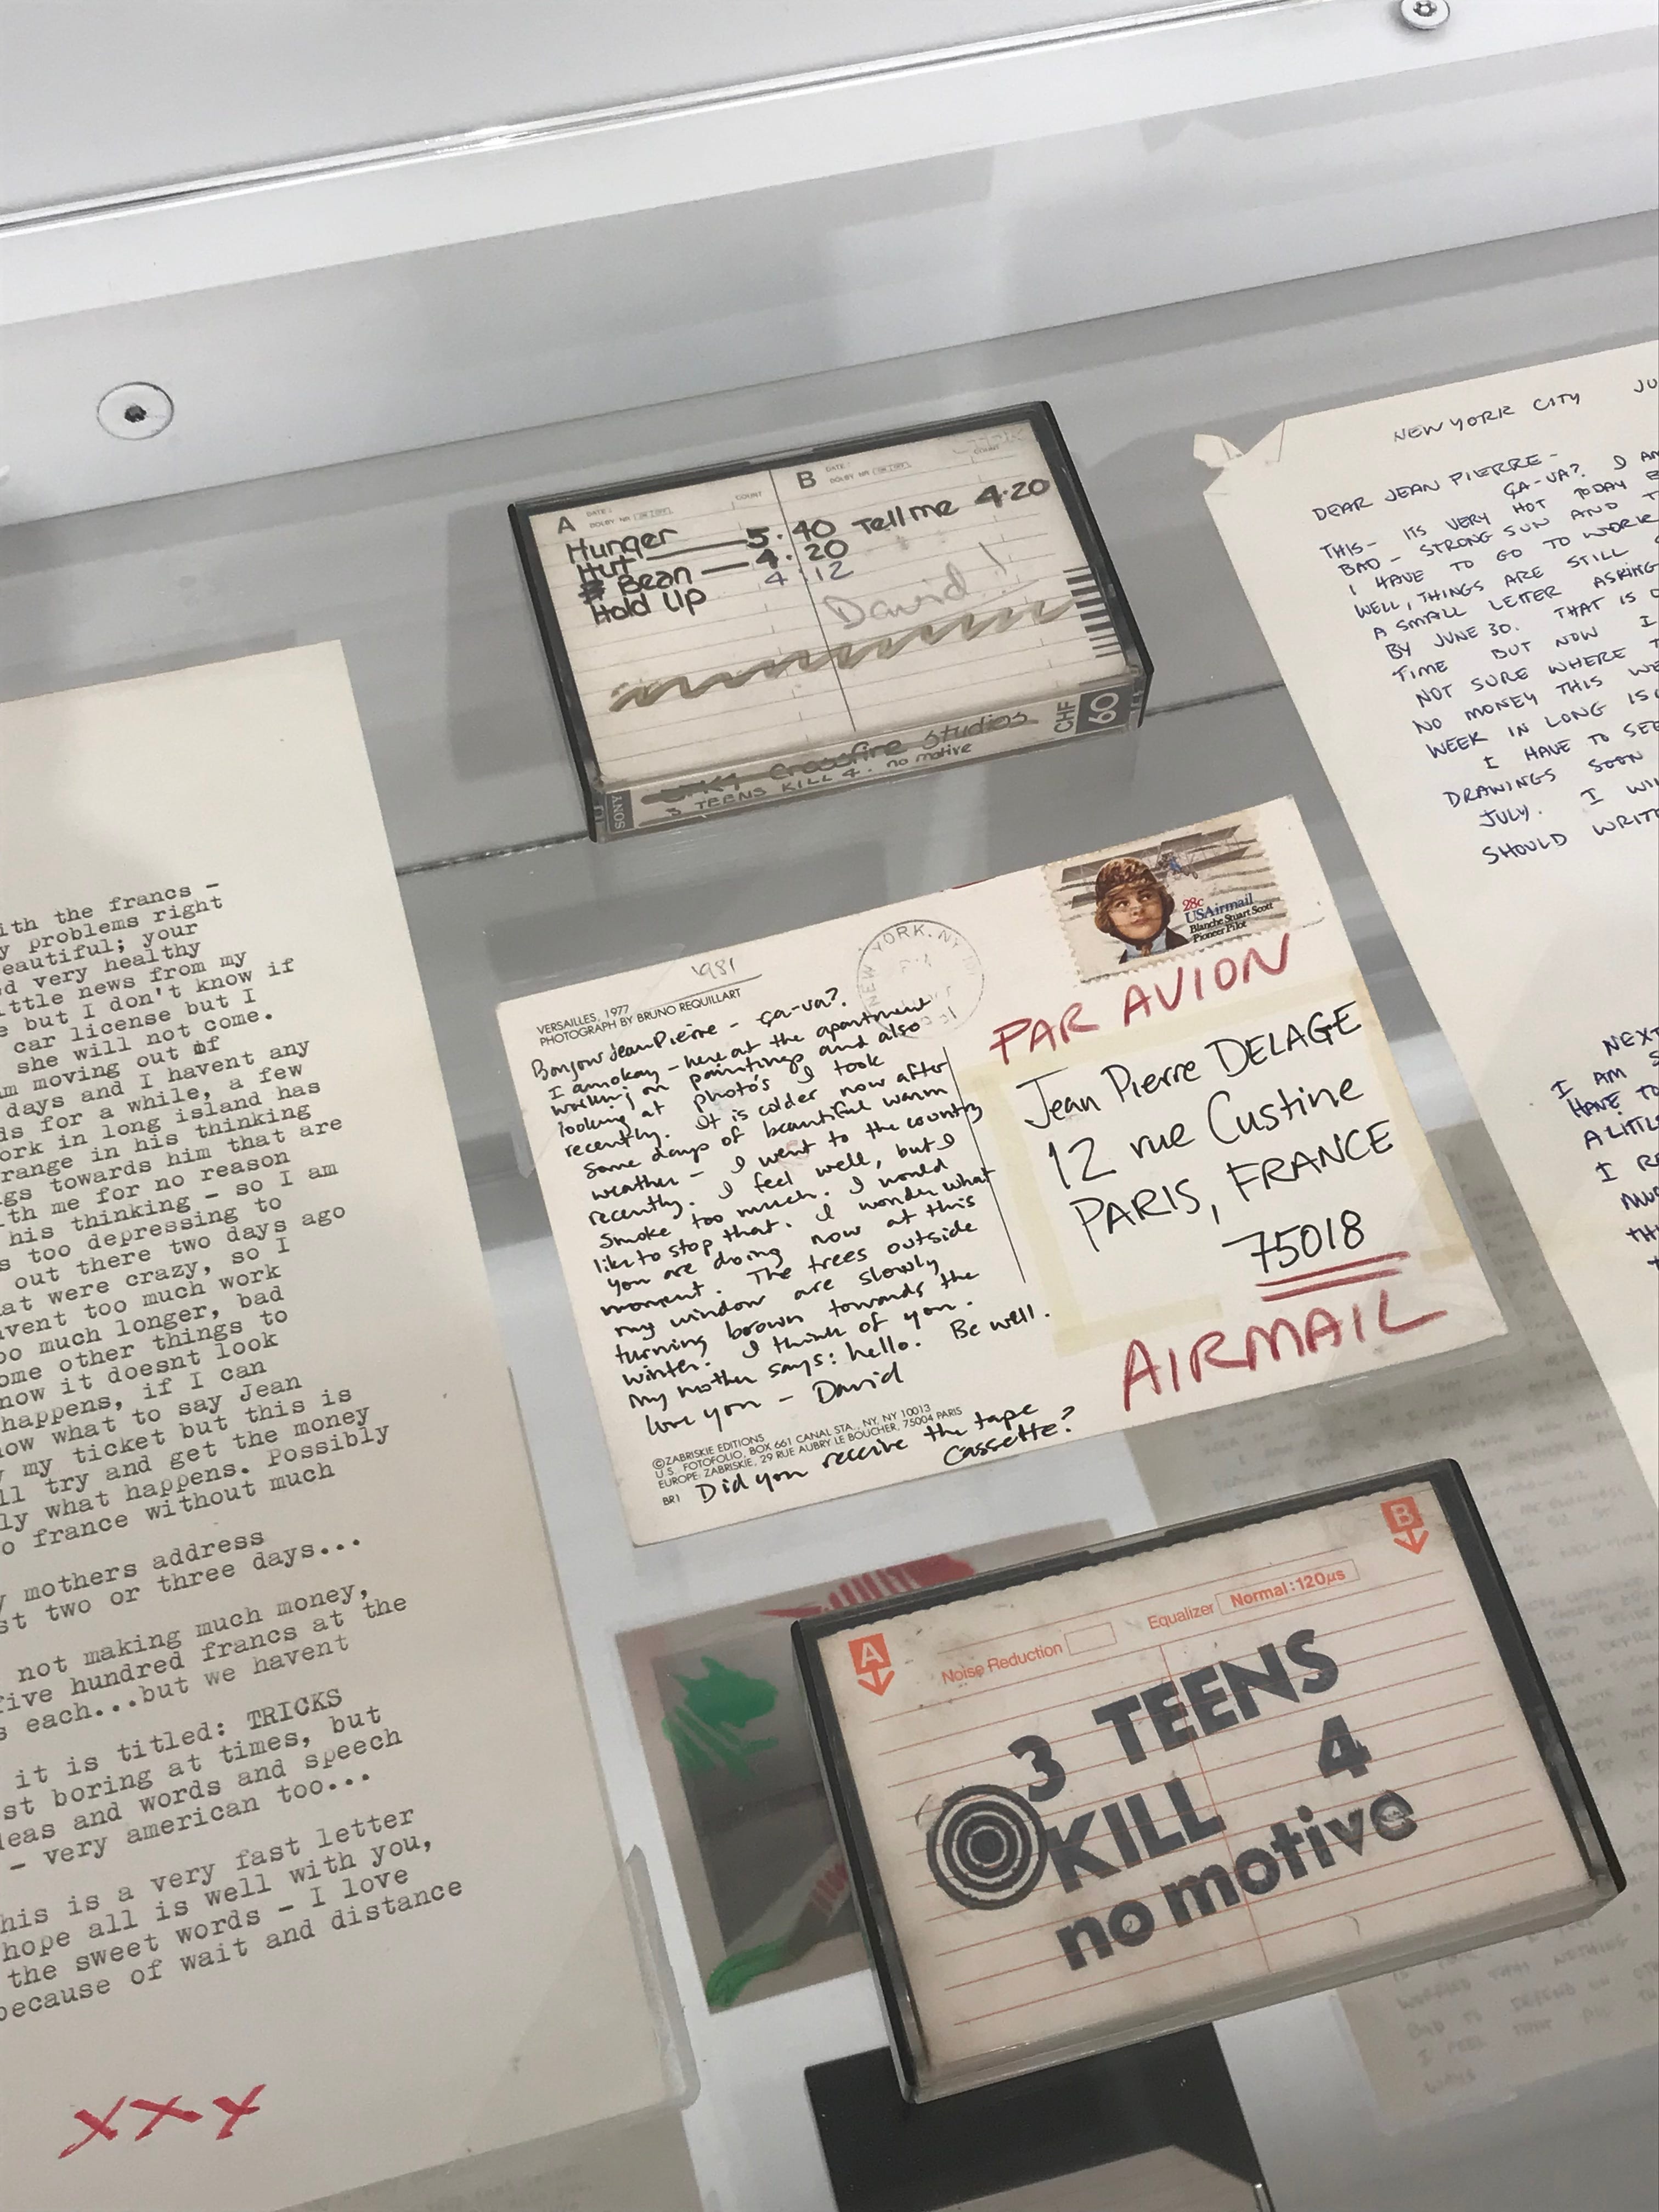 ith the francs -
y problems right
eautiful; your
d very healthy
ittle news from my
e but I don't know if
car license but I
she will not come.
m moving out of
days and I havent any
ds for a while, a few
ork in long island has
range in his thinking
gs towards him that are
th me for no reason
his thinking - so I am
s too depressing to
out there two days ago
at were crazy, so I
vent too much work
oo much longer, bad
ome other things to
now it doesnt look
happens, if I can
ow what to say Jean
y my ticket but this is
ll try and get the money
ly what happens. Possibly
o france without much
y mothers address
st two or three days...
not making much money,
five hundred francs at the
s each...but we havent
it is titled: TRICKS
st boring at times, but
deas and words and speech
- very american too...
his is a very fast letter
hope all is well with you,
the sweet words - I love
because of wait and distance
xxx
A DATE: COUNT B DATE: COUNT
DOLBY NR DOLBY NR
Hunger 5:40 Tell me 4:20
Hut 4:20
Bean 4:12
Hold Up
David!
Crossfire Studios
3 TEENS KILL 4. no motive
SONY CHF 60
1981
VERSAILLES, 1977
PHOTOGRAPH BY BRUNO REQUILLART
Bonjour Jean Pierre - ça-va?.
I am okay - here at the apartment
working on paintings and also
looking at photo's I took
recently. It is colder now after
some days of beautiful warm
weather - I went to the country
recently. I feel well, but I
smoke too much. I would
like to stop that. I wonder what
you are doing now at this
moment. The trees outside
my window are slowly
turning brown towards the
winter. I think of you.
My mother says: hello. Be well.
love you - David
©ZABRISKIE EDITIONS
U.S. FOTOFOLIO, BOX 661 CANAL STA., NY, NY 10013
EUROPE: ZABRISKIE, 29 RUE AUBRY LE BOUCHER, 75004 PARIS
BR1 Did you receive the tape
cassette?
NEW YORK, NY
28c
USAirmail
Blanche Stuart Scott
Pioneer Pilot
PAR AVION
Jean Pierre DELAGE
12 rue Custine
PARIS, FRANCE
75018
AIRMAIL
A B
Noise Reduction Equalizer Normal:120µs
3 TEENS
KILL 4
no motive
NEW YORK CITY JU
DEAR JEAN PIERRE -
ÇA-VA?. I AM
THIS - ITS VERY HOT TODAY
BAD - STRONG SUN AND
I HAVE TO GO TO WORK
WELL, THINGS ARE STILL
A SMALL LETTER ASKING
BY JUNE 30. THAT IS
TIME BUT NOW I
NOT SURE WHERE
NO MONEY THIS WE
WEEK IN LONG IS
I HAVE TO SEE
DRAWINGS SOON
JULY. I WI
SHOULD WRIT
NEXT
I AM S
HAVE TO
A LITTL
I RE